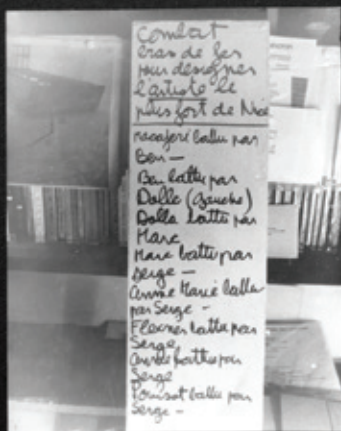 Combat
bras de fer
pour designer
l'artiste le
plus fort de Nice
battu par
Ben —
Ben battu par
Dolla (Gauche)
Dolla battu par
Marc
Marc battu par
Serge —
Annie Marie battu
par Serge -
Flexner battu par
Serge
battu par
Serge
battu par
Serge -